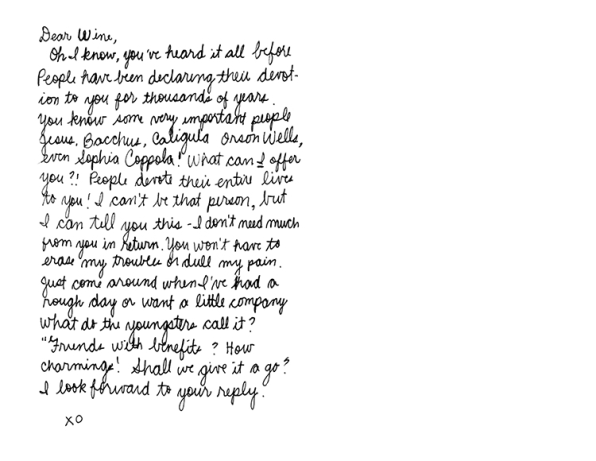 Dear Wine,
Oh I know, you've heard it all before
People have been declaring their devot-
ion to you for thousands of years.
You know some very important people
Jesus, Bacchus, Caligula Orson Wells,
even Sophia Coppola! What can I offer
you?! People devote their entire lives
to you! I can't be that person, but
I can tell you this - I don't need much
from you in return. You won't have to
erase my troubles or dull my pain.
Just come around when I've had a
rough day or want a little company
what do the youngsters call it?
"Friends with benefits"? How
charming! Shall we give it a go?
I look forward to your reply.
XO